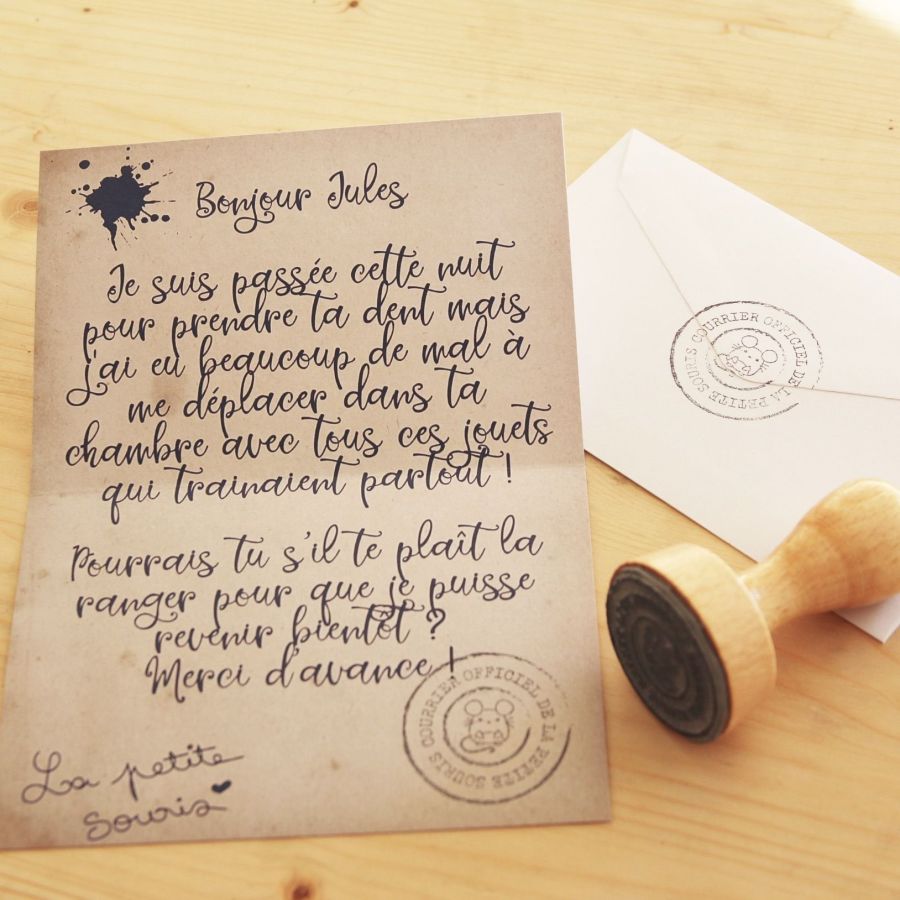 Bonjour Jules
Je suis passée cette nuit
pour prendre ta dent mais
j'ai eu beaucoup de mal à
me déplacer dans ta
chambre avec tous ces jouets
qui trainaient partout !
Pourrais tu s'il te plaît la
ranger pour que je puisse
revenir bientôt ?
Merci d'avance !
La petite
souris
COURRIER OFFICIEL DE LA PETITE SOURIS
COURRIER OFFICIEL DE LA PETITE SOURIS